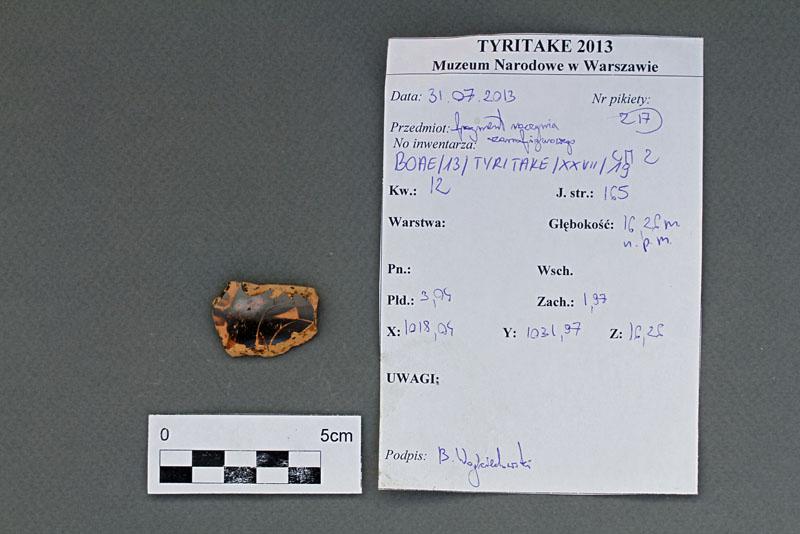 TYRITAKE 2013
Muzeum Narodowe w Warszawie
Data: 31.07.2013 Nr pikiety:
Z 17
Przedmiot: fragment naczynia
No inwentarza: czarnofigurowego
BOAE/13/TYRITAKE/XXVII/19 СП 2
Kw.: 12 J. str.: 165
Warstwa: Głębokość: 16,26 m
n.p.m.
Pn.: Wsch.
Płd.: 3,04 Zach.: 1,97
X: 1018,04 Y: 1031,97 Z: 16,26
UWAGI:
Podpis: B. Wojciechowski
0 5cm